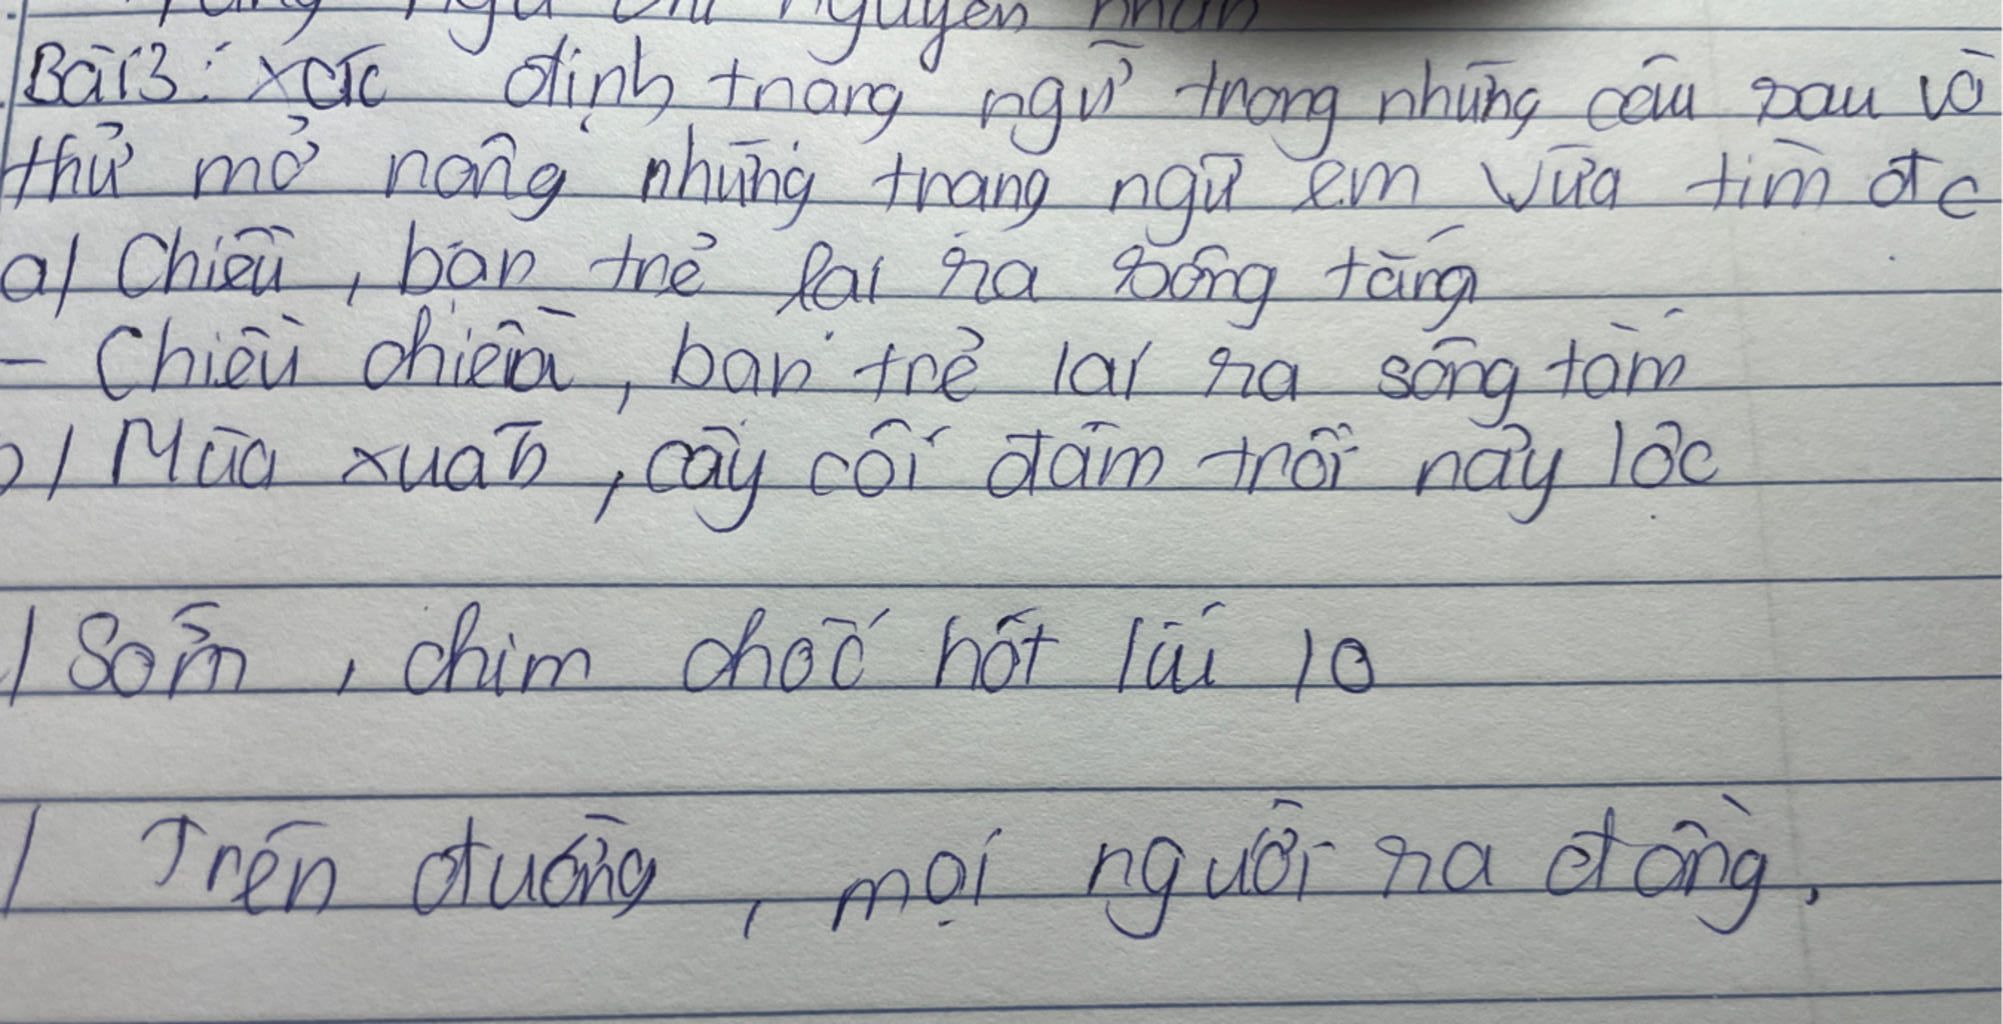 Trạng ngữ chỉ nguyên nhân
Bài 3: xác định trạng ngữ trong những câu sau và
thử mở rộng những trạng ngữ em vừa tìm đc
a/ Chiều, bọn trẻ lại ra sông tắng
- Chiều chiều, bọn trẻ lại ra sông tắm
b/ Mùa xuân, cây cối đâm trồi nảy lộc
/ Sớm, chim chóc hót líu lo
/ Trên đường, mọi người ra đồng,